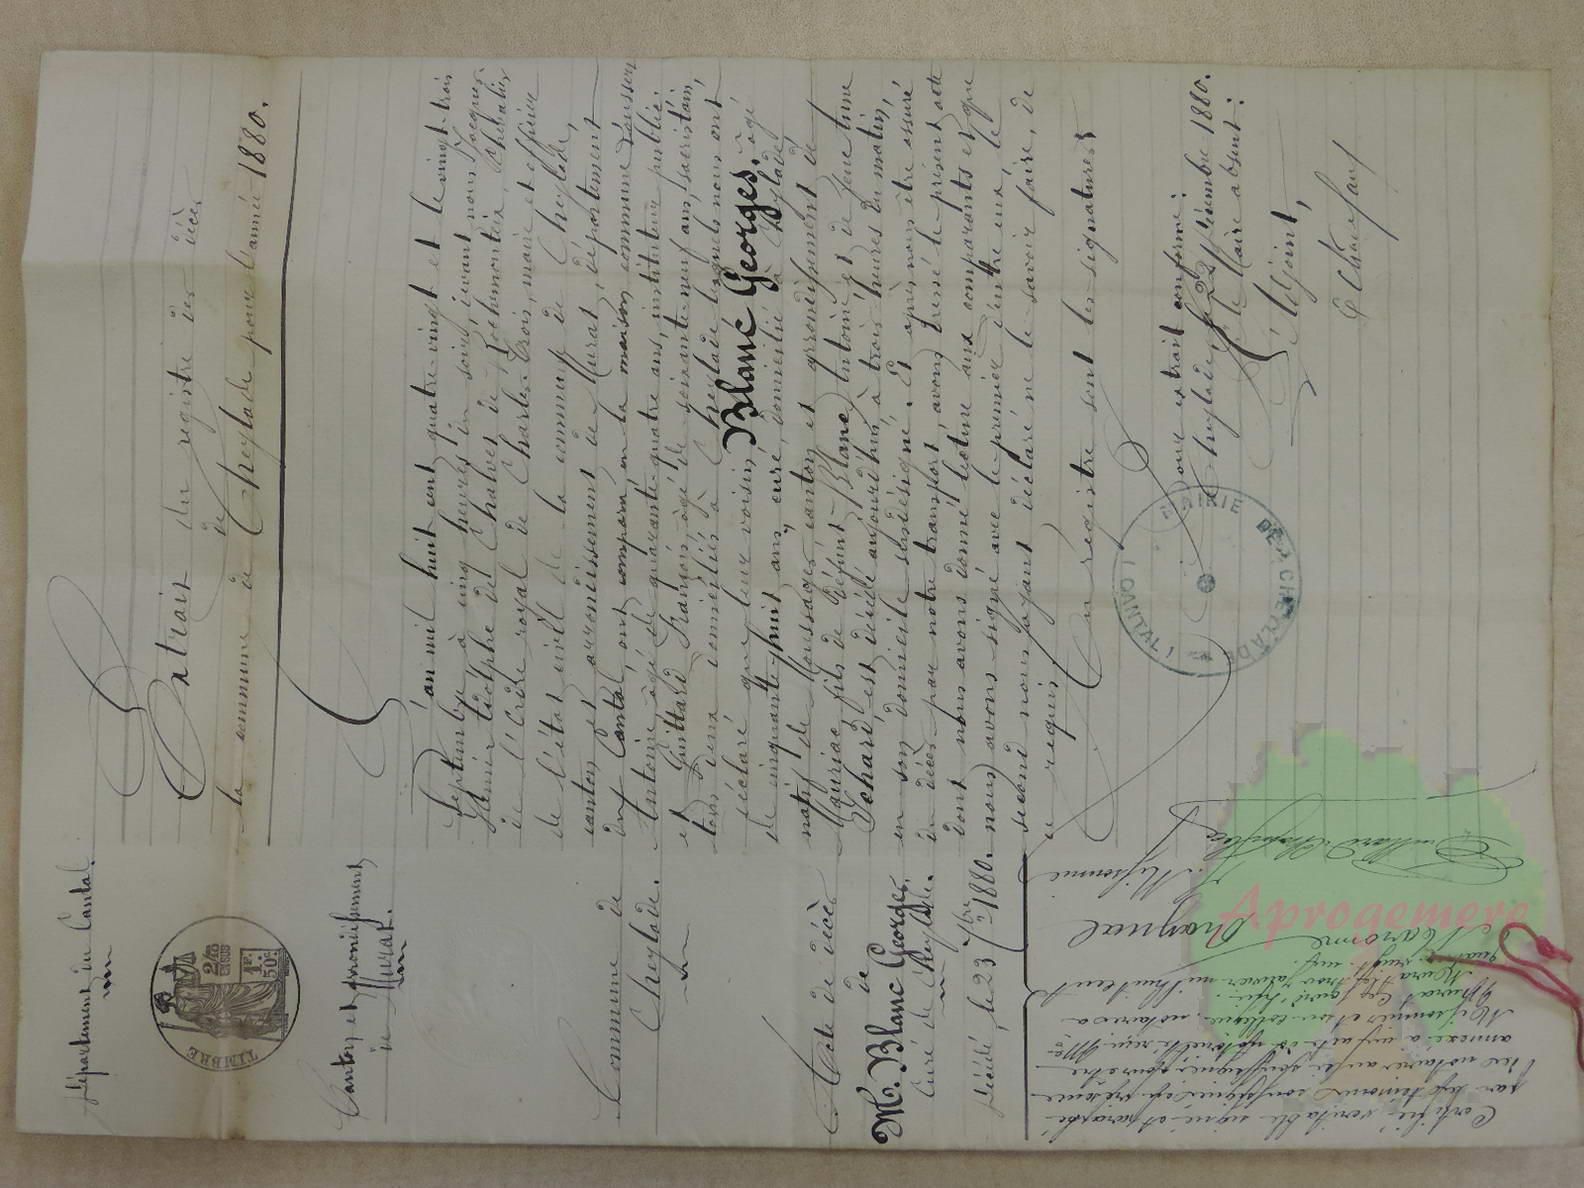 Département du Cantal.
TIMBRE
2/10
EN SUS
1F.
50c.
Canton et arrondissement
de Murat.
Commune de
Cheylade.
Acte de décès
de
M. Blanc Georges,
Curé de Cheylade.
Décédé, le 23 7bre 1880.
Extrait du registre des décès
de
la commune de Cheylade pour l'année 1880.
L'an mil huit cent quatre vingt et le vingt trois
Septembre à cinq heures du soir, devant nous Jacques
de Chalvet de Rochemonteix, Chevalier
de l'ordre royal de Charles trois, maire et officier
de l'état civil de la commune de Cheylade,
canton et arrondissement de Murat, département
du Cantal, ont comparu en la maison commune
Antoine âgé de quarante quatre ans, instituteur public.
et Guittard François âgé de soixante neuf ans, sacristain,
tous deux domiciliés à Cheylade lesquels nous ont
déclaré que leur voisin, Blanc Georges, âgé
de cinquante huit ans, curé, domicilié à Cheylade
natif de Moussages canton et arrondissement de
Mauriac fils de défunt Blanc Antoine et de feue
est décédé aujourd'hui à trois heures du matin,
en son domicile susdésigné. Et après nous être assuré
du décès par notre transport, avons dressé le présent acte
dont nous avons donné lecture aux comparants et que
nous avons signé avec le premier d'entre eux, le
second nous ayant déclaré ne le savoir faire, de
ce requis.
Au registre sont les signatures
Pour extrait conforme:
Cheylade, le 22 Décembre 1880.
Le Maire absent:
L'Adjoint,
MAIRIE DE CHEYLADE
(CANTAL)
Certifié véritable signé et paraphé
par les témoins soussignés en présence
des notaires aussi soussignés, pour être
annexé à un acte de notoriété reçu Me
Misonnier et son collègue notaires à
Murat
quatre-vingt-un.
Aprogemere